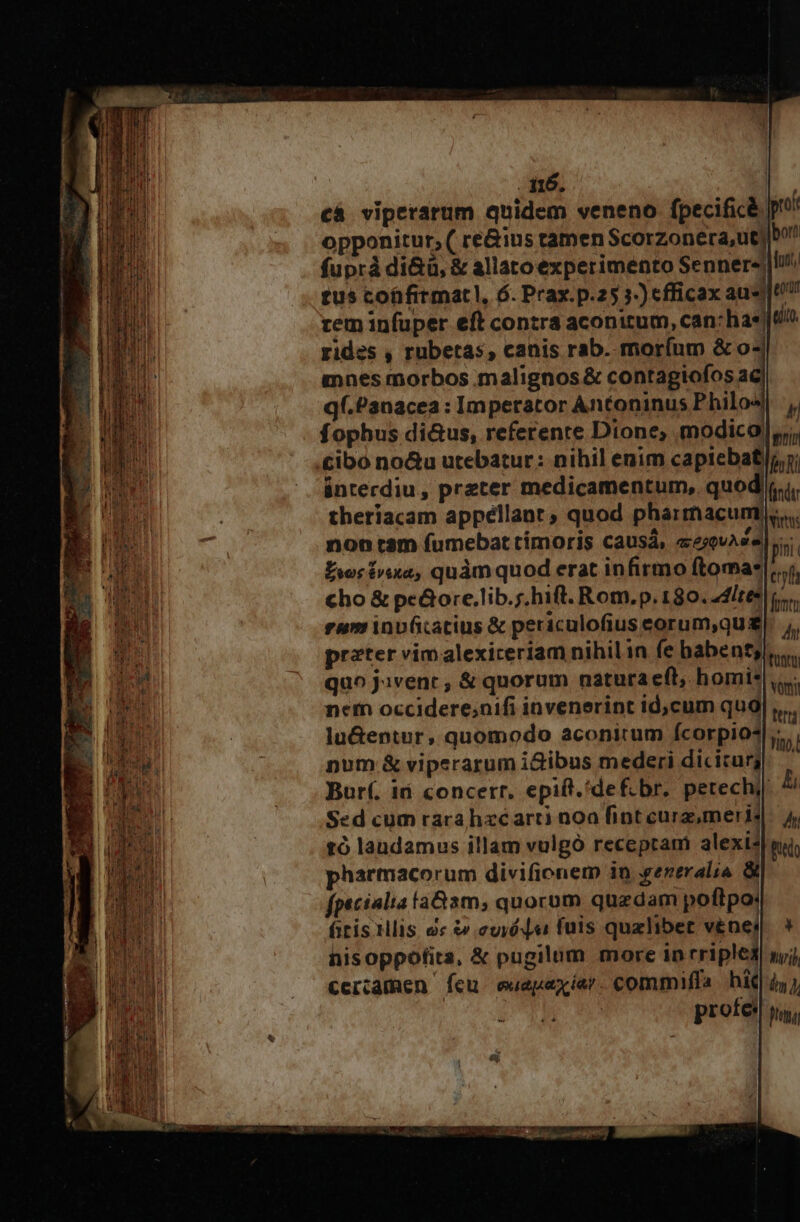 116.
câ viperarum quidem veneno ſpecificè
opponitur, ( rectius tamen Scorzonera, ut
ſuprà dictũ, & allato experimento Senner⸗
tus confirmat l. 6. Prax. p. 253.) efficax au⸗
tem inſuper eſt contra aconitum, cantha⸗
rides, rubetas, canis rab. morſum & o⸗
mnes morbos malignos & contagioſos ac
qſ. Panacea: Imperator Antoninus Philo⸗
ſophus dictus, referente Dione, modico
cibo noctu utebatur: nihil enim capiebat
interdiu, præter medicamentum, quod
theriacam appellant, quod pharmacum
non tam ſumebat timoris causâ,
quàm quod erat infirmo ſtoma⸗
cho & pectore. lib. 5. hiſt. Rom. p. 180. Alte⸗
rum inuſitatius & periculoſius eorum, quæ
præter vim alexiteriam nihil in ſe habent,
quo juvent, & quorum natura eſt, homi⸗
nem occidere, niſi invenerint id, cum quo
luctentur, quomodo aconitum ſcorpio⸗
num & viperarum ictibus mederi dicitur,
Burſ. in concert. epiſt. de f. br. petech.
Sed cum rara hæc arti noa ſint curæ, meri⸗
tò laudamus illam vulgò receptam alexi⸗
pharmacorum diviſionem in generalia &
ſpecialia factam, quorum quædam poſtpo⸗
ſitis illis ſuis quælibet vene⸗
nis oppoſita, & pugilum more in triplex
certamen ſeu commiſſa hîc
profe⸗